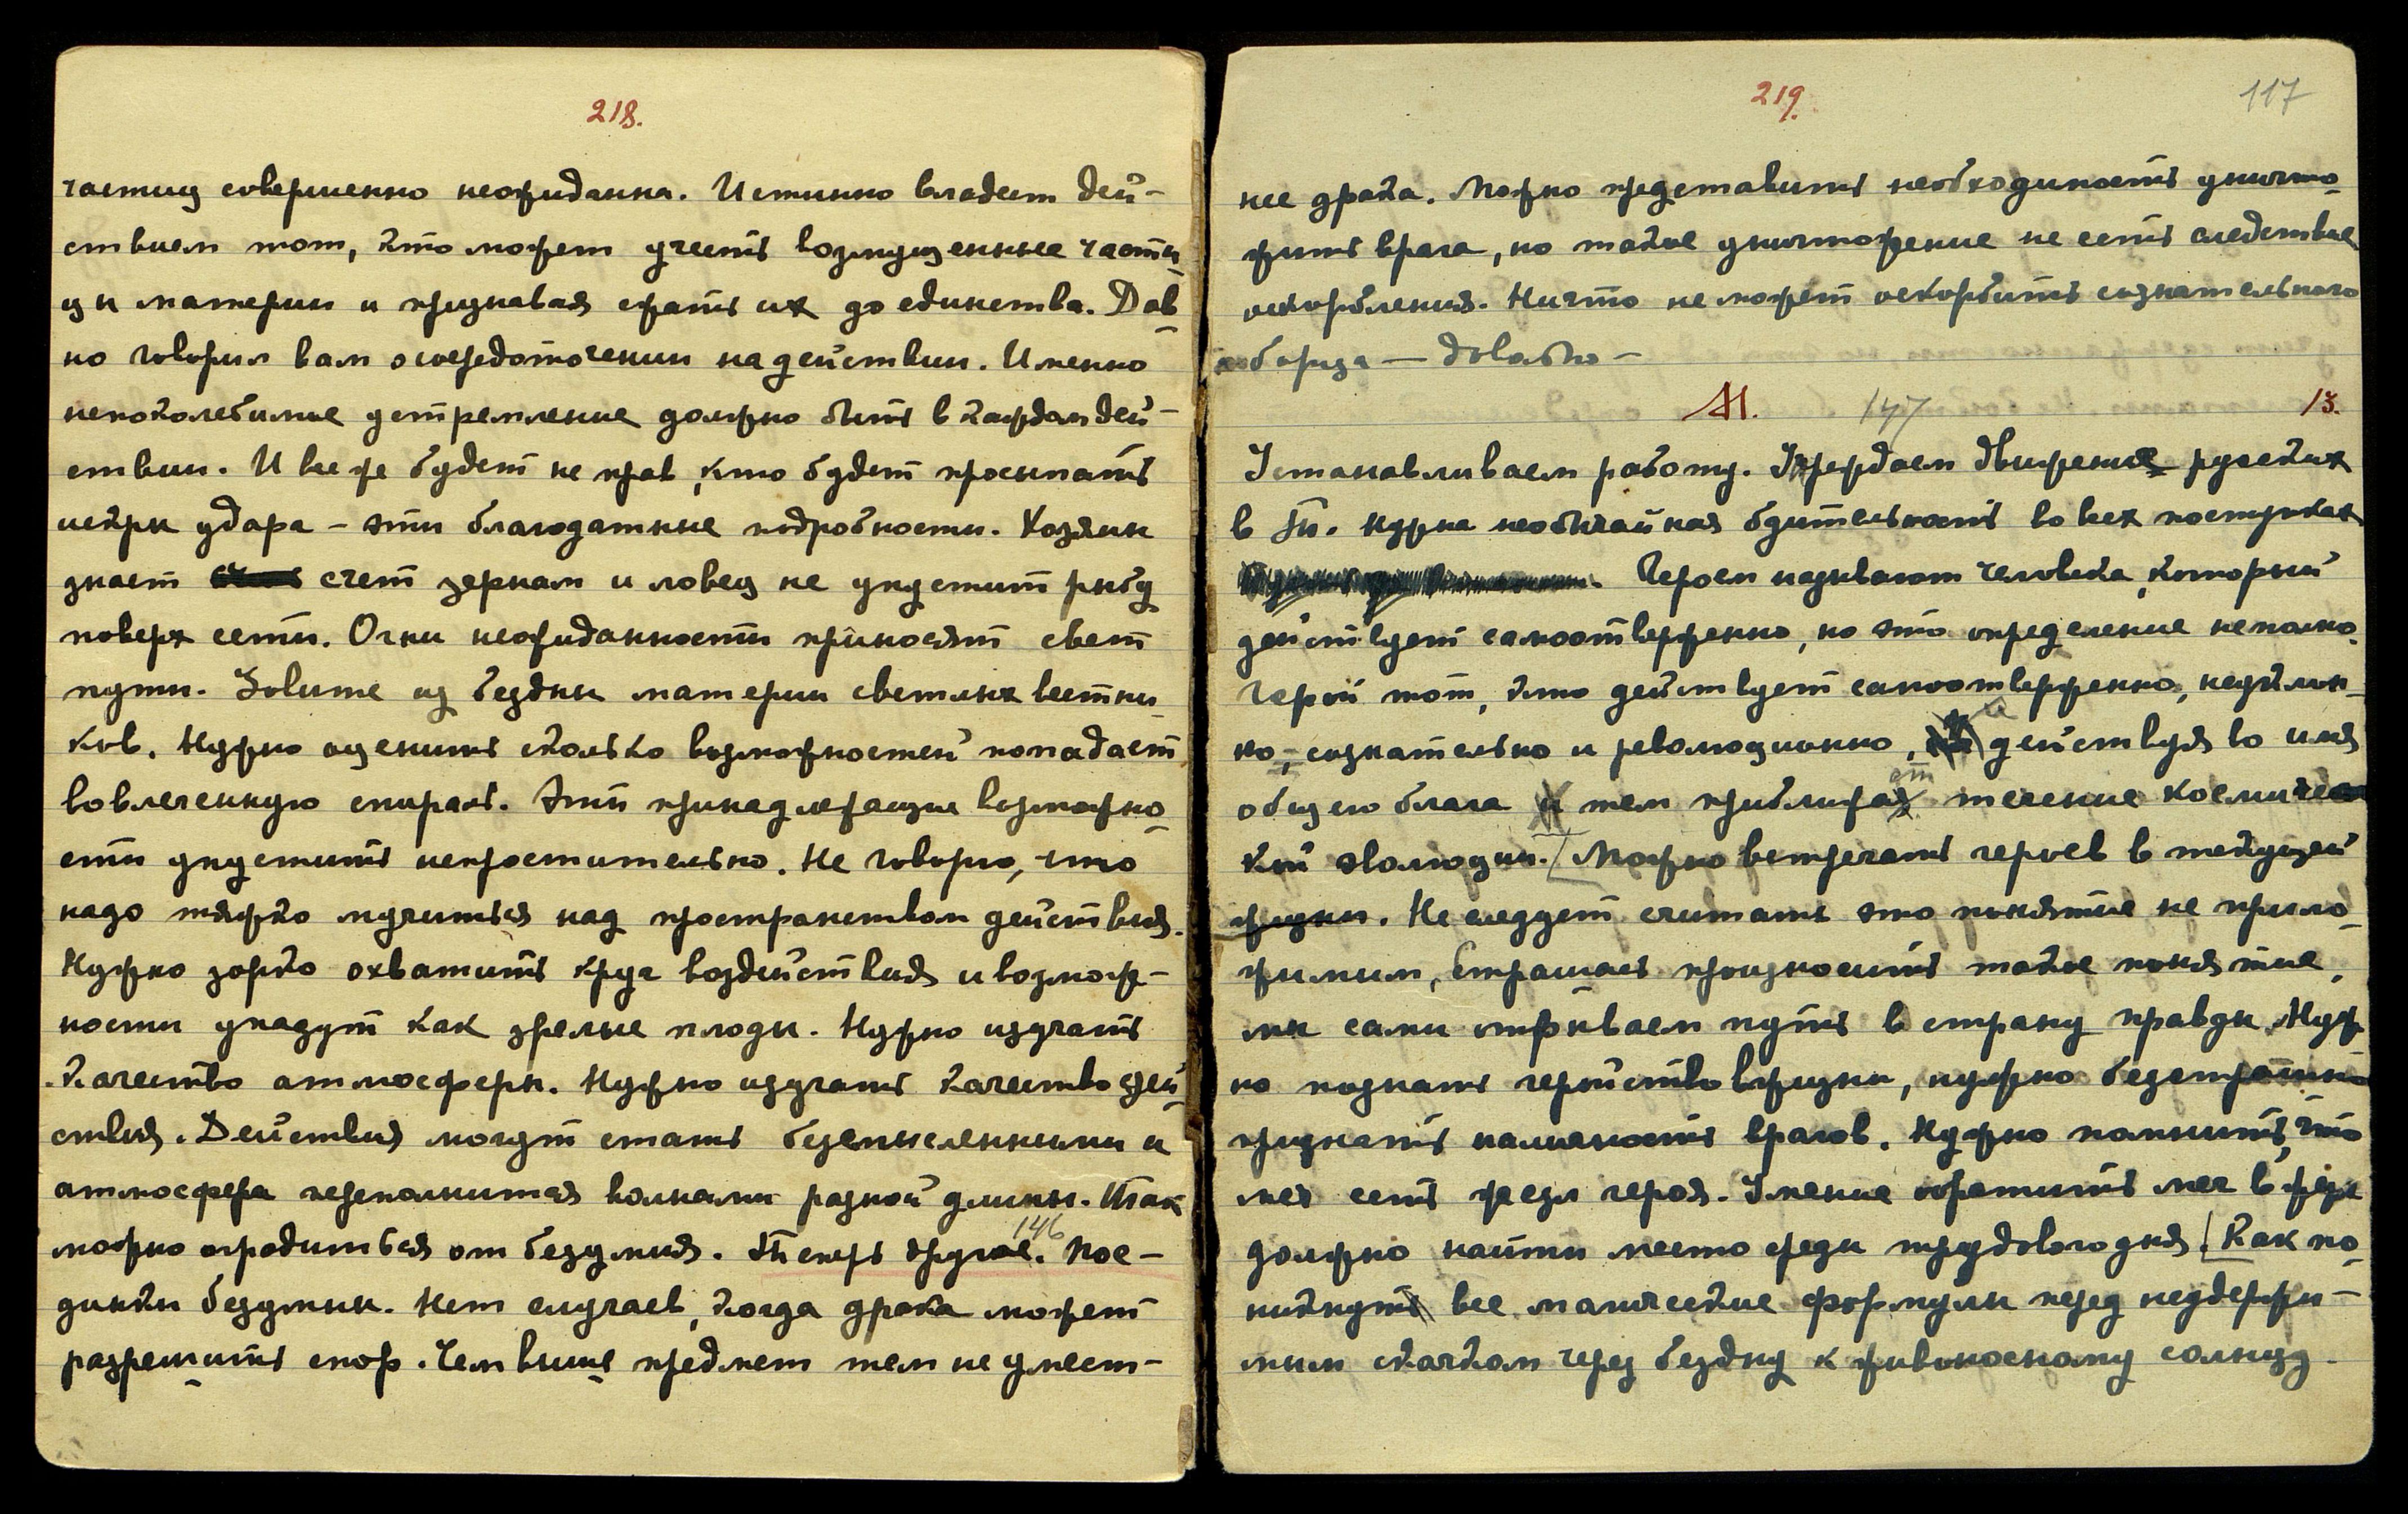 218.
частиц совершенно неожиданна. Истинно владеет дей-
ствием тот, кто может учесть возмущенные части
цы материи и призывая сжать их до единства. Дав
но говорил вам о сосредоточении на действии. Именно
непоколебимое устремление должно быть в каждом дей-
ствии. И все же будет не прав, кто будет просыпать
искры удара – эти благодатные подробности. Хозяин
знает счет зернам и ловец не упустит рыбу
поверх сети. Огни неожиданности приносят свет
пути. Зовите из бездны материи светлых вестни
ков. Нужно оценить сколько возможностей попадает
вовлеченную спираль. Эти принадлежащие возможно
сти упустить непростительно. Не говорю, что
надо тяжко мучиться над пространством действия.
Нужно зорко охватить круг воздействия и возмож-
ности упадут как зрелые плоды. Нужно изучать
качество атмосферы. Нужно изучать качество дей
ствия. Действия могут стать безмысленными и
атмосфера переполнится волнами разной длины. Так
можно оградиться от безумия. Теперь другое. 146 Пое-
динки безумны. Нет случаев, когда драка может
разрешить спор. Чем выше предмет тем не умест-
219.
117
нее драка. Можно представить необходимость уничто
жить врага, но такое уничтожение не есть следствие
оскорбления. Ничто не может оскорбить сознательного
борца — довольно –
М. 147 13.
Устанавливаем работу. Утверждаем движение русских
в Тн. Нужна необычайная бдительность во всех поступках
Героем называют человека, который
действует самоотверженно, но это определение неполно.
Герой тот, кто действует самоотверженно, неуклон-
но, сознательно и революционно, а действуя во имя
общего блага тем приближает течение космичес
кой эволюции. [Можно встречать героев в текущей
жизни. Не следует считать это понятие не прило
жимым, Страшась произносить такое понятие,
мы сами отрываем путь в страну правды. Нуж
но познать геройство в жизни, нужно безстрашно
признать наличность врагов. Нужно помнить, что
меч есть жезл героя. Умение обратить меч в жезл
должно найти место среди трудового дня. [Как по
никнут все магические формулы перед неудержи-
мым скачком через бездну к живоносному солнцу.